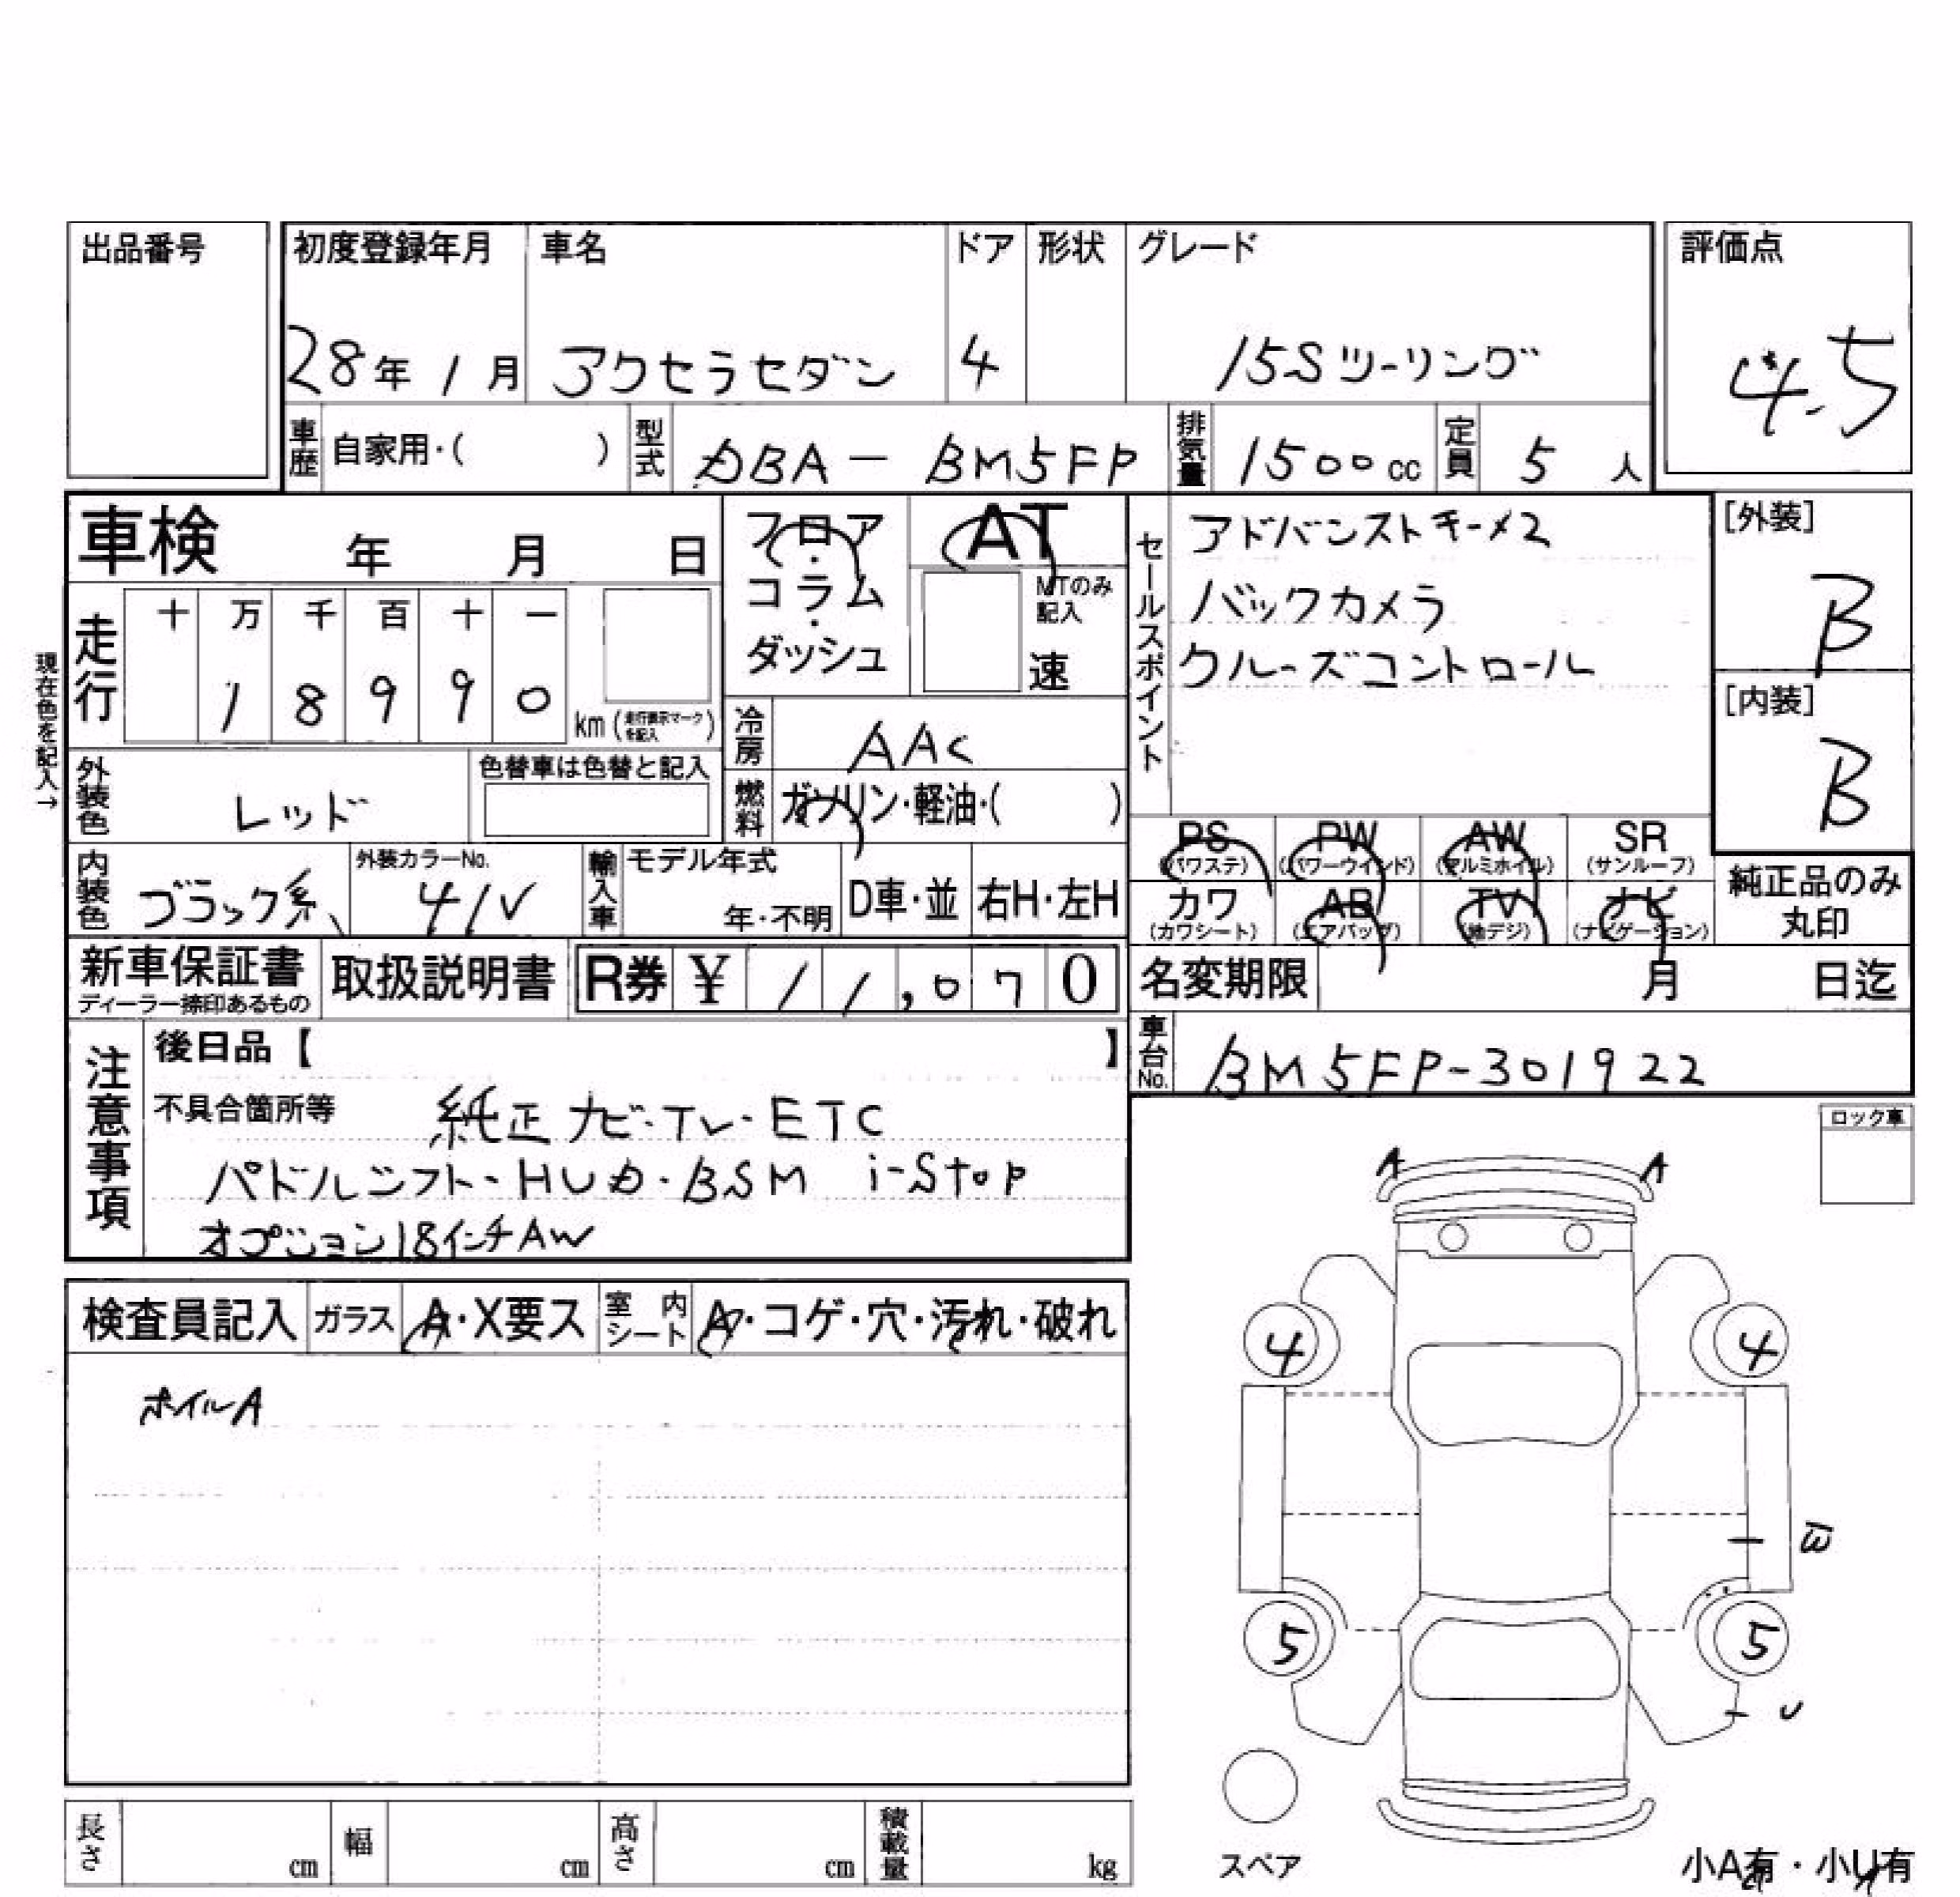 出品番号
初度登録年月 車名 ドア 形状 グレード 評価点
28年1月 アクセラセダン 4 15Sツーリング 4.5
車歴 自家用・( ) 型式 DBA-BM5FP 排気量 1500cc 定員 5人
車検 年 月 日
フロア・コラム・ダッシュ
AT
MTのみ記入
速
セールスポイント
アドバンストキーメ2
バックカメラ
クルーズコントロール
[外装]
B
[内装]
B
現在色を記入→
走行 十 万 千 百 十 一
1 8 9 9 0 km(走行表示マークを記入)
冷房 AAC
燃料 ガソリン・軽油・( )
外装色 レッド 色替車は色替と記入
PS (パワステ) PW (パワーウインド) AW (アルミホイル) SR (サンルーフ)
カワ (カワシート) AB (エアバッグ) TV (地デジ) ナビ (ナビゲーション)
純正品のみ丸印
内装色 ブラック系 外装カラーNo. 41V 輸入車 モデル年式 年・不明 D車・並 右H・左H
新車保証書 ディーラー捺印あるもの 取扱説明書 R券 ¥ 11,070
名変期限 月 日迄
車台No. BM5FP-301922
注意事項
後日品【 】
不具合箇所等 純正ナビ・TV・ETC
パドルシフト・HUD・BSM i-Stop
オプション18インチAW
ロック車
検査員記入 ガラス A・X要ス 室内シート A・コゲ・穴・汚れ・破れ
ホイルA
A A
4 4
5 5
U
スペア
小A有・小U有
長さ cm 幅 cm 高さ cm 積載量 kg